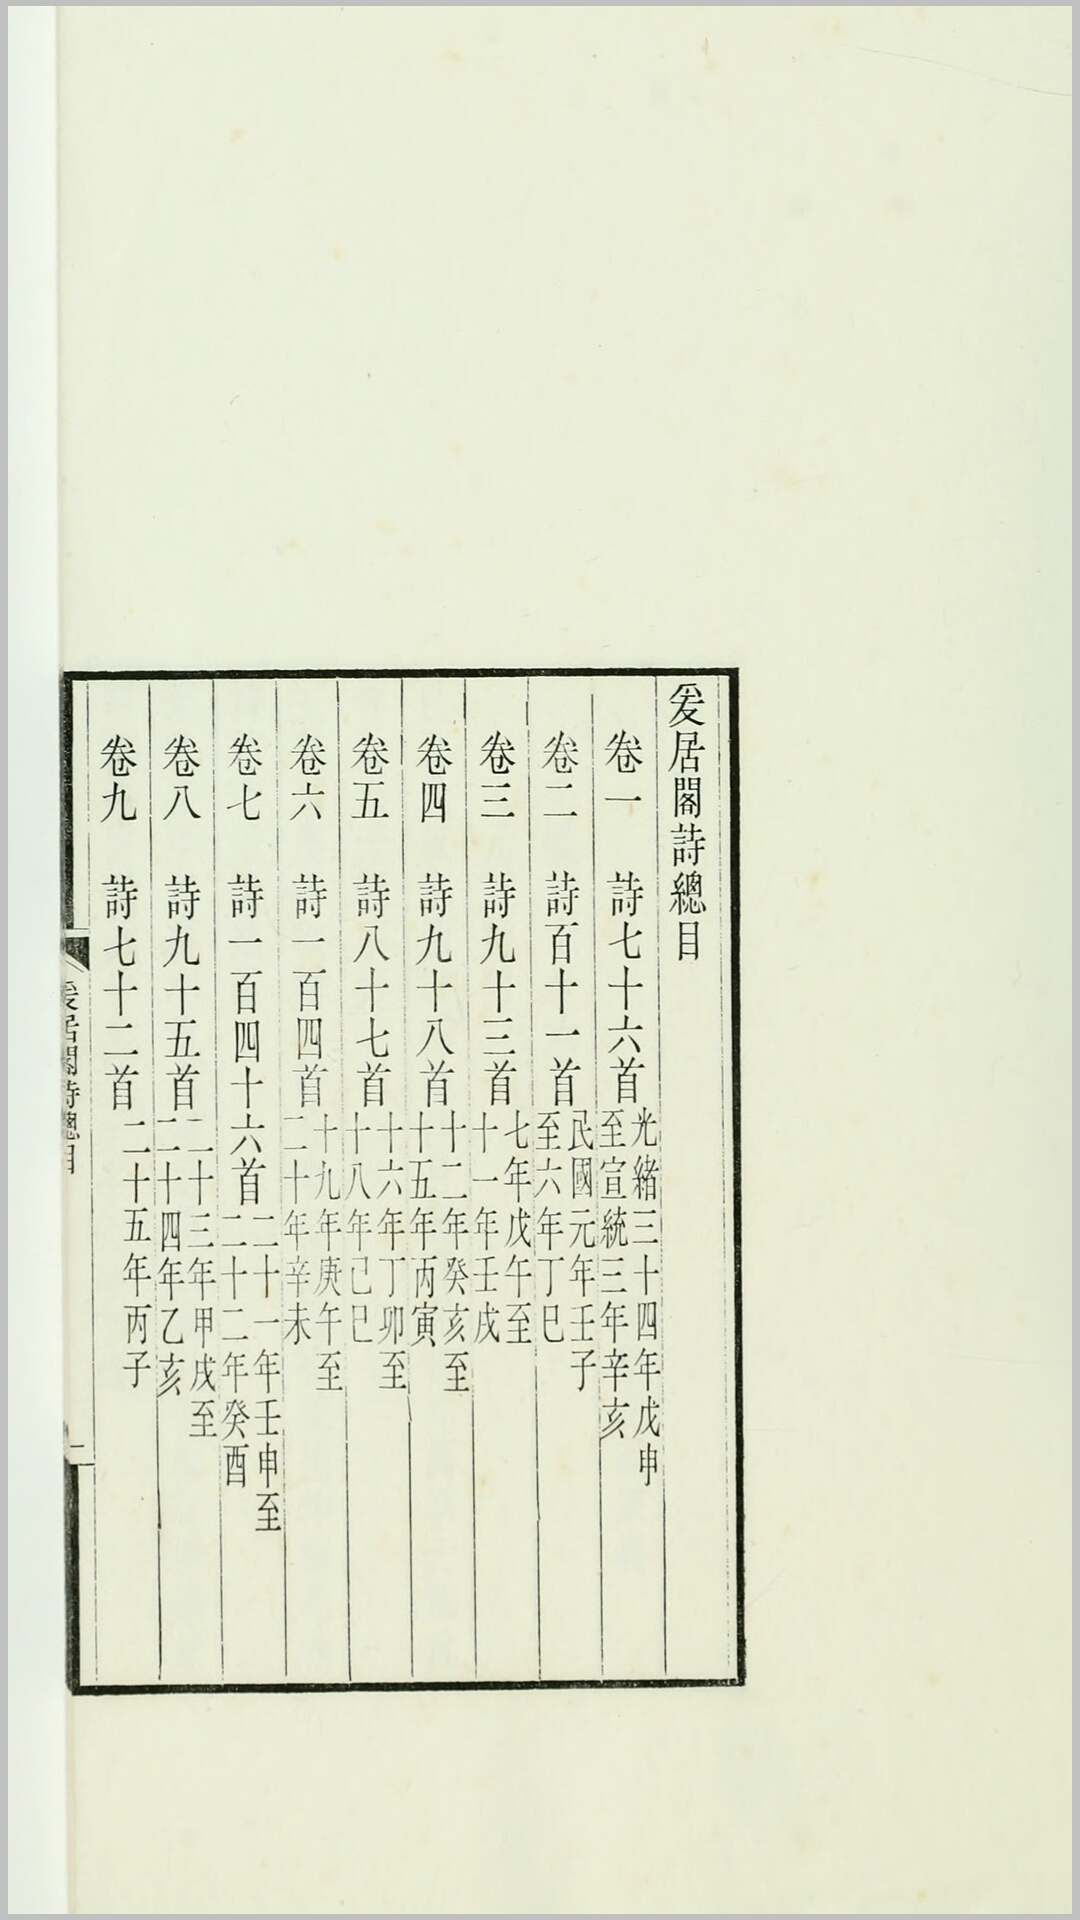 爰居閣詩總目
卷一 詩七十六首 光緒三十四年戊申至宣統三年辛亥
卷二 詩百十一首 民國元年壬子至六年丁巳
卷三 詩九十三首 七年戊午至十一年壬戌
卷四 詩九十八首 十二年癸亥至十五年丙寅
卷五 詩八十七首 十六年丁卯至十八年己巳
卷六 詩一百四首 十九年庚午至二十年辛未
卷七 詩一百四十六首 二十一年壬申至二十二年癸酉
卷八 詩九十五首 二十三年甲戌至二十四年乙亥
卷九 詩七十二首 二十五年丙子
爰居閣詩總目 一